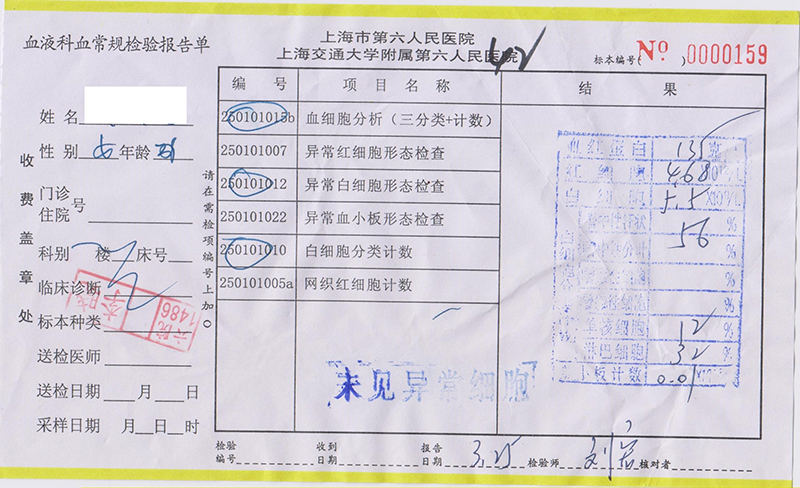 血液科血常规检验报告单
上海市第六人民医院
上海交通大学附属第六人民医院
标本编号( Nº )0000159
收费盖章处
姓名
性别 女 年龄
门诊
住院 号
科别 楼 床号
临床诊断
标本种类
送检医师
送检日期 月 日
采样日期 月 日 时
请在需检项编号上加O
编号 项目名称 结果
250101015b 血细胞分析（三分类+计数）
250101007 异常红细胞形态检查
250101012 异常白细胞形态检查
250101022 异常血小板形态检查
250101010 白细胞分类计数
250101005a 网织红细胞计数
血红蛋白 135 克
红细胞 4.68
白细胞 5.5
56 %
%
%
%
12 %
淋巴细胞 32 %
小板计数 0.01
未见异常细胞
六院
1486
检验
编号
收到
日期
报告
日期 3.25
检验师
核对者